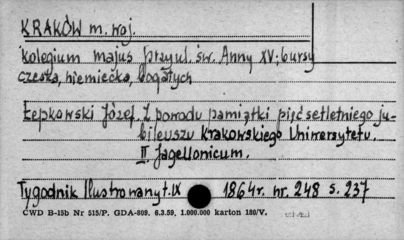 KRAKÓW m. woj.
Kolegium majus przy ul. św. Anny XV; bursy
czeska, niemiecka, bogatych
Łepkowski Józef. Z powodu pamiątki pięćsetletniego ju-
bileuszu Krakowskiego Uniwersytetu.
II. Jagellonicum.
Tygodnik Ilustrowany t. IX 1864 r. nr. 248 s. 237
CWD B-15b Nr 515/P. GDA-809. 6.3.59, 1.000.000 karton 180/V.